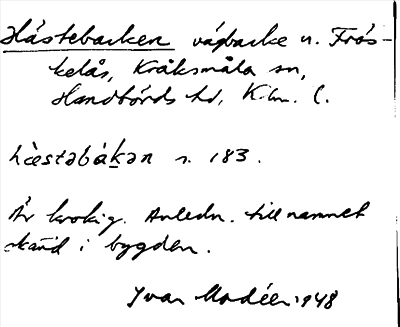 Hästebacken vägbacke n. Frös-
kelås, Kråksmåla sn,
Handbörds hd, K:lm. l.
hæ̀stəbákən s. 183.
Är krokig. Anledn. till namnet
okänd i bygden.
Ivar Modéer 1948